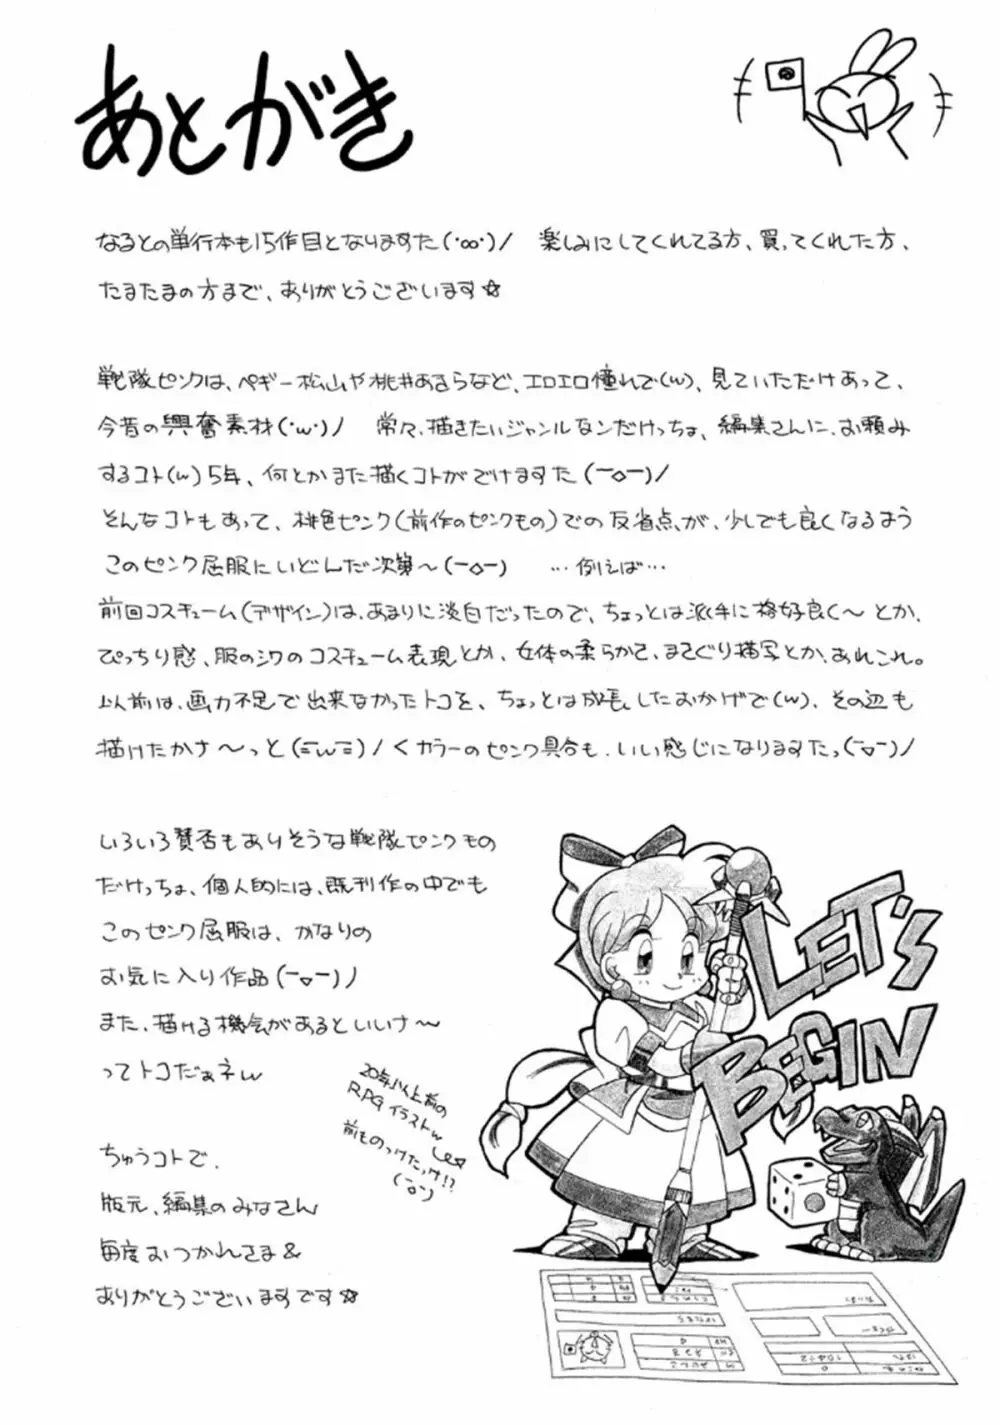 あとがき
なるとの単行本も15作目となりますた(・∞・)ノ 楽しみにしてくれてる方、買ってくれた方、
たまたまの方まで、ありがとうございます☆
戦隊ピンクは、ペギー松山や桃井あきらなど、エロエロ憧れで(w)、見ていただけあって、
今昔の興奮素材(・w・)ノ 常々、描きたいジャンルなンだけっちょ、編集さんに、お頼み
するコト(w)5年、何とかまた描くコトがでけますた(￣◇￣)ノ
そんなコトもあって、桃色ピンク(前作のピンクもの)での反省点が、少しでも良くなるよう
このピンク屈服にいどんだ次第〜(￣◇￣) …例えば…
前回コスチューム(デザイン)は、あまりに淡白だったので、ちょっとは派手に格好良く〜とか、
ぴっちり感、服のシワのコスチューム表現とか、女体の柔らかさ、まさぐり描写とか、あれこれ。
以前は、画力不足で出来なかったトコを、ちょっとは成長したおかげで(w)、その辺も
描けたかナ〜っと(￣w￣)ノくカラーのピンク具合も、いい感じになりますたっ(￣▽￣)ノ
いろいろ賛否もありそうな戦隊ピンクもの
だけっちょ、個人的には、既刊作の中でも
このピンク屈服は、かなりの
お気に入り作品(￣▽￣)ノ
また、描ける機会があるといいナ〜
ってトコだぁネw
20年以上前の
RPGイラストw
前ものっけたっけ!?
(￣o￣)
LET'S
BEGIN
ちゅうコトで、
版元、編集のみなさん
毎度おつかれさま&
ありがとうございますです☆